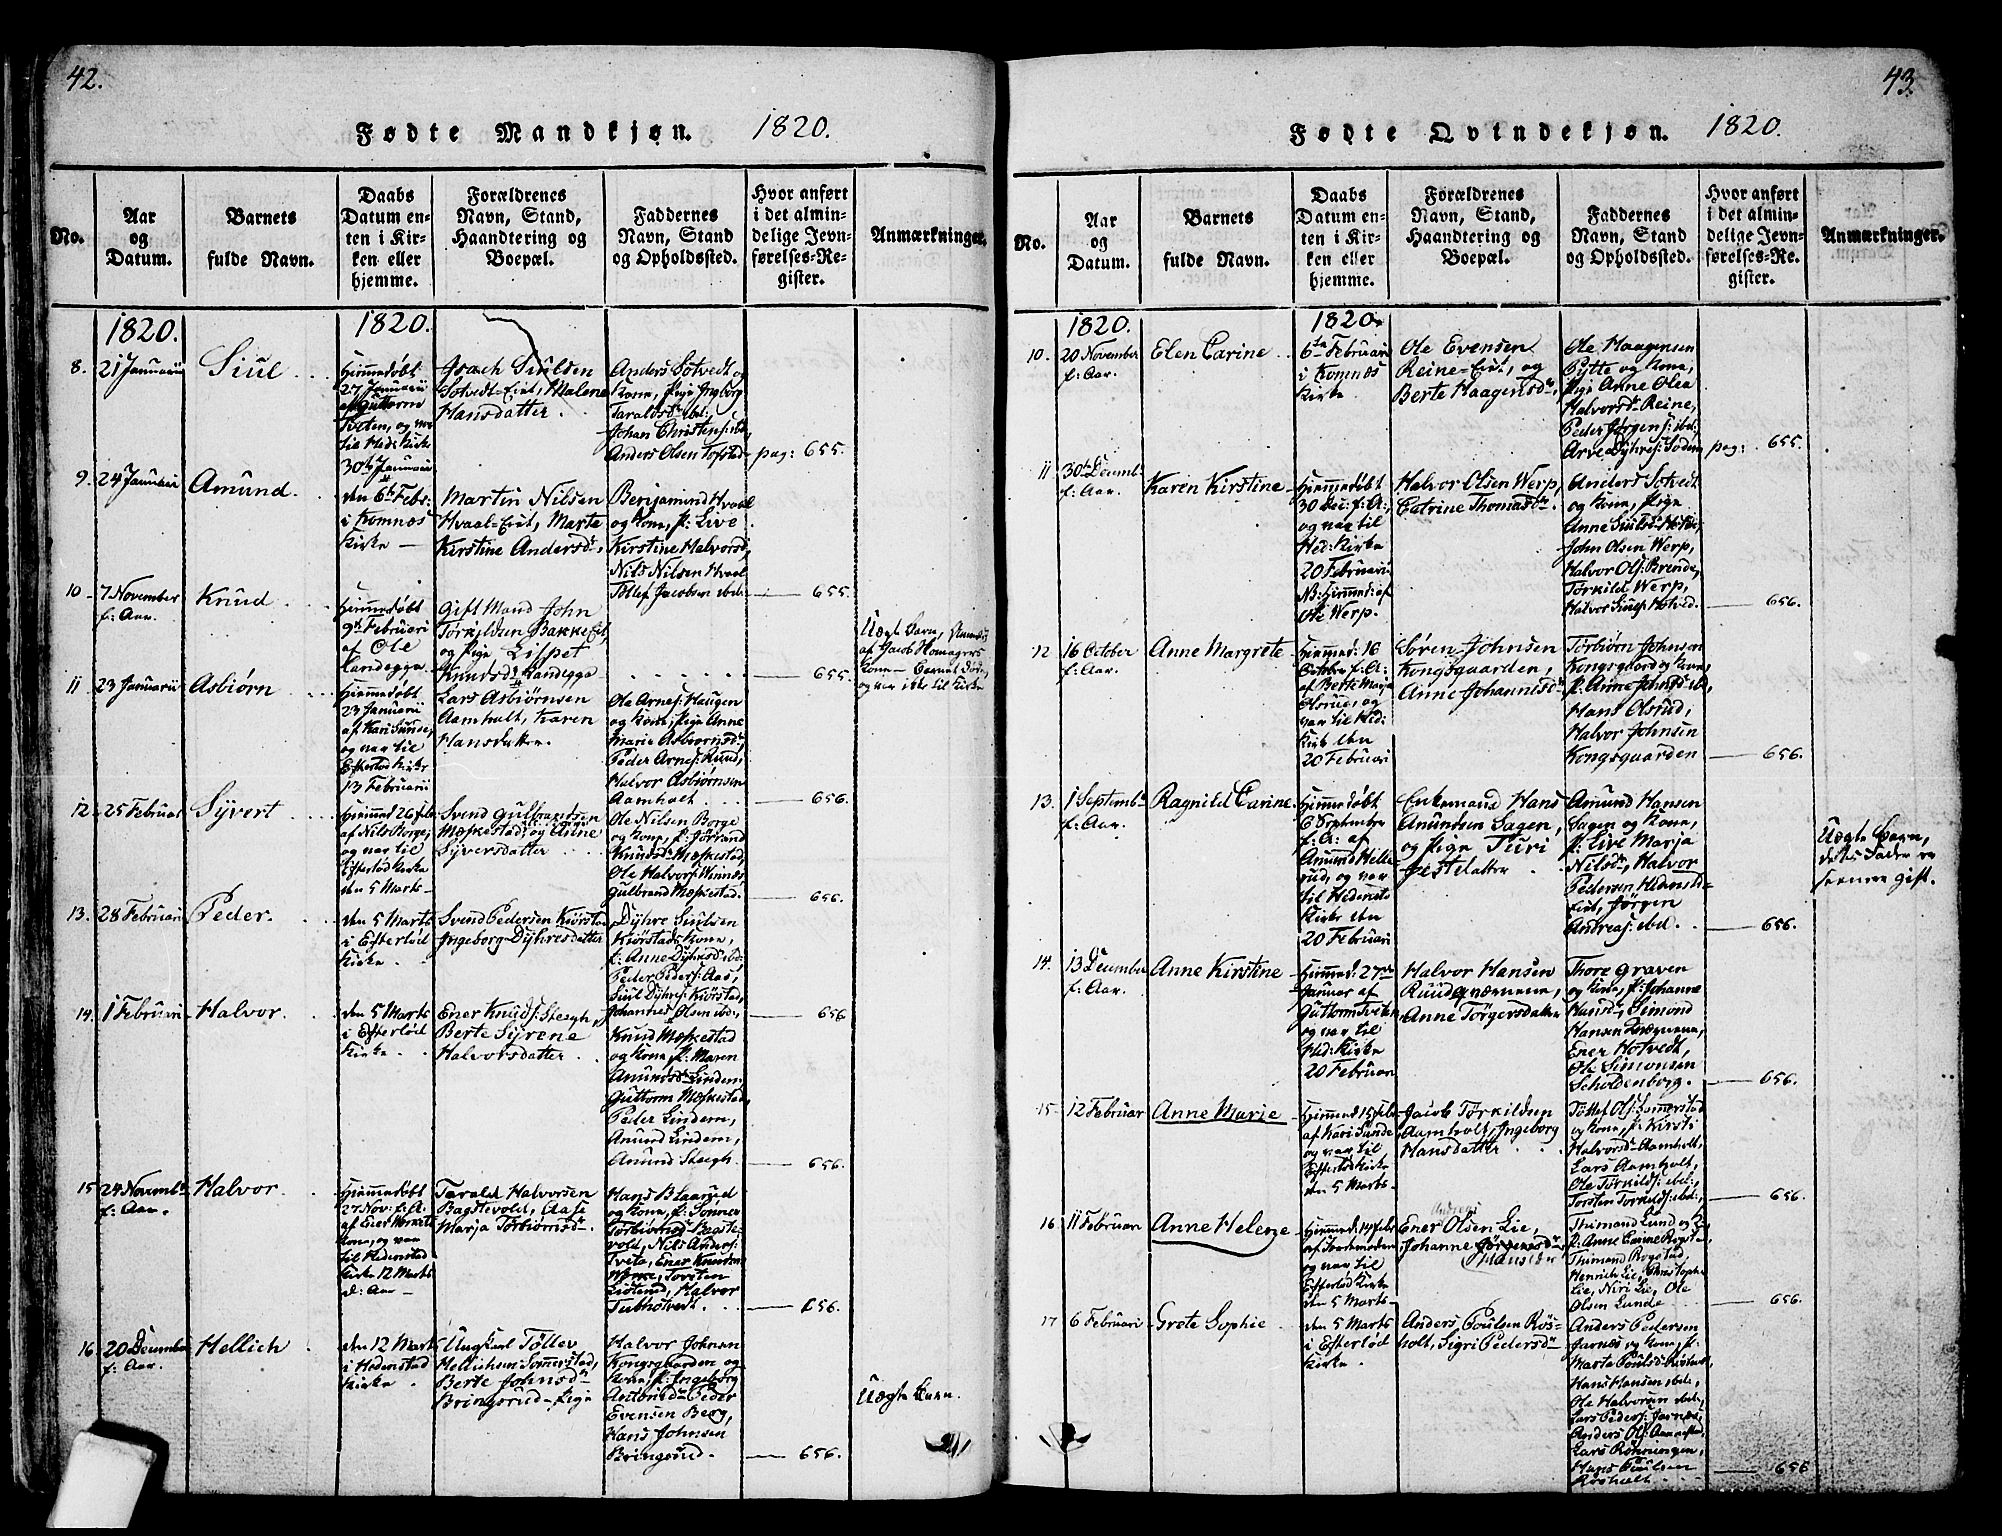 42.
Fødte Mandkjøn. 1820.
No.
Aar
og
Datum.
Barnets
fulde Navn.
Daabs
Datum en-
ten i Kir-
ken eller
hjemme.
Forældrenes
Navn, Stand,
Haandtering og
Boepæl.
Faddernes
Navn, Stand
og Opholdssted.
Hvor anført
i det almin-
delige Jevn-
førelses-Re-
gister.
Anmærkninger.
1820.
1820.
8.
21 Januarii
Siul
Hjemmedøbt
27 Januarii
af Guttorm
Tveten, og var
til Heds Kirke
30te Januarii
Isach Siulsen
Sotvedt-Eiet, Malene
Hansdatter
Anders Sotvedt og
Kone, Pige Ingborg
Taraldsdr ibd:,
Johan Christens: ibd,
Anders Olsen Tofstad
pag: 655.
9.
24 Januarii
Amund.
den 6te Febr:
i Komnæs
Kirke
Martin Nilsen
Hvaal-Eiet, Marte
Kirstine Andersdr,
Benjamund Hvaal
og Kone, P: Live
Kirstine Halvorsd,
Nils Nilsen Hvaal
Tollef Jacobsen ibd:
655.
10
7 November
f: Aar.
Knud
Hjemmedøbt
9de Februari
af Ole
Landegge
Gift Mand John
Torkildsen Bakke Eie,
og Pige Lispet
Knudsdr Landegge
655.
Uægte Barn,
af Jacob Homagers
Kone - Barnet døde,
og var ikke til Kirke
11
23 Januarii
Asbiørn
Hjemmedøbt
23 Januarii
af Kari Sunde,
og var til
Efteløds Kirke
13 Februarii
Lars Asbiørnsen
Aamholt, Karen
Hansdatter.
Ole Arnes: Haugen
og Kone, Pige Anne
Marie Asbiørnsd,
Peder Arnes: Ruud,
Halvor Asbiørnsen
Aamholt
656.
12
25 Februar
Syvert
Hjemmed 26 feb
af Nils Borge,
og var til
Efteløds Kirke
den 5 Marts
Svend Gulbrandsen
Møskestad, og Anne
Syversdatter
Ole Nilsen Borge
og Kone, P: Jørrand
Knudsd Møskestad,
Ole Halvors: Winnæs
Gulbrand Møskestad.
656.
13.
28 Februari
Peder.
den 5 Marts
i Efteløds
Kirke
Svend Pedersen Kiørstad
Ingeborg Dyhresdatter
Dyhre Siulsen
Kiørstads Kone,
P: Anne Dyhresd ibd:
Peder Peders: Aas,
Siul Dyhres: Kiørstad,
Johannes Olsen ibd:
656
14.
1 Februari
Halvor.
den 5 Marts
i Efteløds
Kirke
Ener Knuds: Steegh,
Berte Syrene
Halvorsdatter
Knud Møskestad
og Kone, P: Maren
Amundsd Lindem,
Guttorm Møskestad,
Peder Lindem,
Amund Lindem,
Amund Steegh.
656.
15
24 Novembr
f: Aar.
Halvor
Hjemmedøbt
27 Nov: f: A:
af Ener
Kone, og var
til Hedenstad
Kirke 12 Marts
d: Aar
Tarald Halvorsen
Bagstevold, Aase
Marja Torbiørnsdr
Hans Blaarud
og Kone, P:
Torbiørnsd Bagste-
vold, Nils Anders:
Tveta, Ener Knudsen
Torsten
Halvor
656.
16
20 Decembr
f: Aar.
Hellich
den 12 Marts
i Hedenstad
Kirke
Ungkarl Tollev
Hellichsen Sommerstad,
Berte Johnsdr
Bringsrud - Pige
Halvor Johnsen
Kongsgaarden og
Kone, P: Ingeborg
Peder
Evensen Berg,
Hans Johnsen
Bringsrud.
656.
Uægte Barn.
43.
Fødte Qvindekjøn. 1820.
No.
Aar
og
Datum.
Barnets
fulde Navn.
Daabs
Datum en-
ten i Kir-
ken eller
hjemme.
Forældrenes
Navn, Stand,
Haandtering og
Boepæl.
Faddernes
Navn, Stand
og Opholdssted.
Hvor anført
i det almin-
delige Jevn-
førelses-Re-
gister.
Anmærkninger.
1820.
1820.
10.
20 November
f: Aar.
Elen Carine
6te Februari
i Komnæs
Kirke
Ole Evensen
Reine-Eiet, og
Berte Haagensdr,
Ole Haagensen
Pytte og Kone,
Pige Anne Olea
Halvorsdr Reine,
Peder Jørgens: ibd:
Arve Dyhres: Sodem
pag: 655.
11
30te Decemb:
f: Aar.
Karen Kirstine
Hjemmedøbt
30 Dec: f: A:,
og var til
Hed: Kirke
20 Februarii
NB: Hjemmed: af
Ole Werp.
Halvor Olsen Werp,
Catrine Thomasdr.
Anders Sotvedt
og Kone, Pige
Anne Siulsd
John Olsen Werp,
Halvor Ols: Brende,
Torkild Werp,
Halvor Siuls: Hotved.
656.
12
16 October
f: Aar.
Anne Margrete
Hjemmed: 16
October f: A:
af Berte Marja
Olsrud, og
var til Hed:
Kirke den
20 Februari
Søren Johnsen
Kongsgaarden,
Anne Johannisdr
Torbiørn Johnsen
Kongsgaard og Kone,
P: Anne Johnsd ibd,
Hans Olsrud,
Halvor Johnsen
Kongsgaarden
656.
13.
1 Septembr
f: Aar.
Ragnild Carine
Hjemmedøbt
6 September
f: A: af
Amund Helle-
rud, og var
til Hedensta
Kirke den
20 Februari
Enkemand Hans
Amundsen Sagen,
og Pige Turi
Jestdatter
Amund Hansen
Sagen og Kone,
P: Live Marja
Nilsdr, Halvor
Pedersen Hedensta-
Eiet, Jørgen
Andreas: ibd.
656.
Uægte Barn,
dets Fader er
seenere gift.
14.
13 December
f: Aar.
Anne Kirstine
Hjemmed: 27de
Januar af
Guttorm Tveten
og var til
Hed: Kirke
20 Februari
Halvor Hansen
Ruudqværnene,
Anne Torgersdatter
Thore Graven
og Kone, P: Johanne
Hansdr, Simond
Hansen Qværnene,
Ener Hotvedt,
Ole Simonsen
Scholdenborg.
656.
15
12 Februar
Anne Marie
Hjemmed 15 feb
af Kari Sunde
og var til
Efteløds Kirke
den 5 Marts
Jacob Torkildsen
Aamholt, Ingeborg
Hansdatter
Tollef Ols: Somerstad
og Kone, P: Kirsti
Halvorsdr Aamholt,
Lars Aamholt,
Ole Torkilds: ibd:,
Torsten Torkilds: ibd:,
656.
16
11 Februar
Anne Helene
Hjemmed: 14 febr
af Jordemoderen
og var til
Efteløds Kirke
den 5 Marts
Ener Olsen Lie,
Johanne Jørgensdr
Hansdr
Thimand Lund og K,
P: Anne Carine Rogstad,
Thimand Rogstad,
Henrich Lie, Christopher
Lie, Niri Lie, Ole
Olsen Lunde
656.
17
6 Februari
Grete Sophie
den 5 Marts
i Efteløds
Kirke
Anders Poulsen Ros-
holt, Sigri Pedersdr
Anders Pedersen
Jarnæs og Kone, P:
Marte Poulsd
Hans Hansen, ibd:,
Ole Halvorsen ibd:,
Lars Peders: Jarnæs,
Anders Ols:
Lars Rønningen,
Hans Poulsen
Rosholt
656